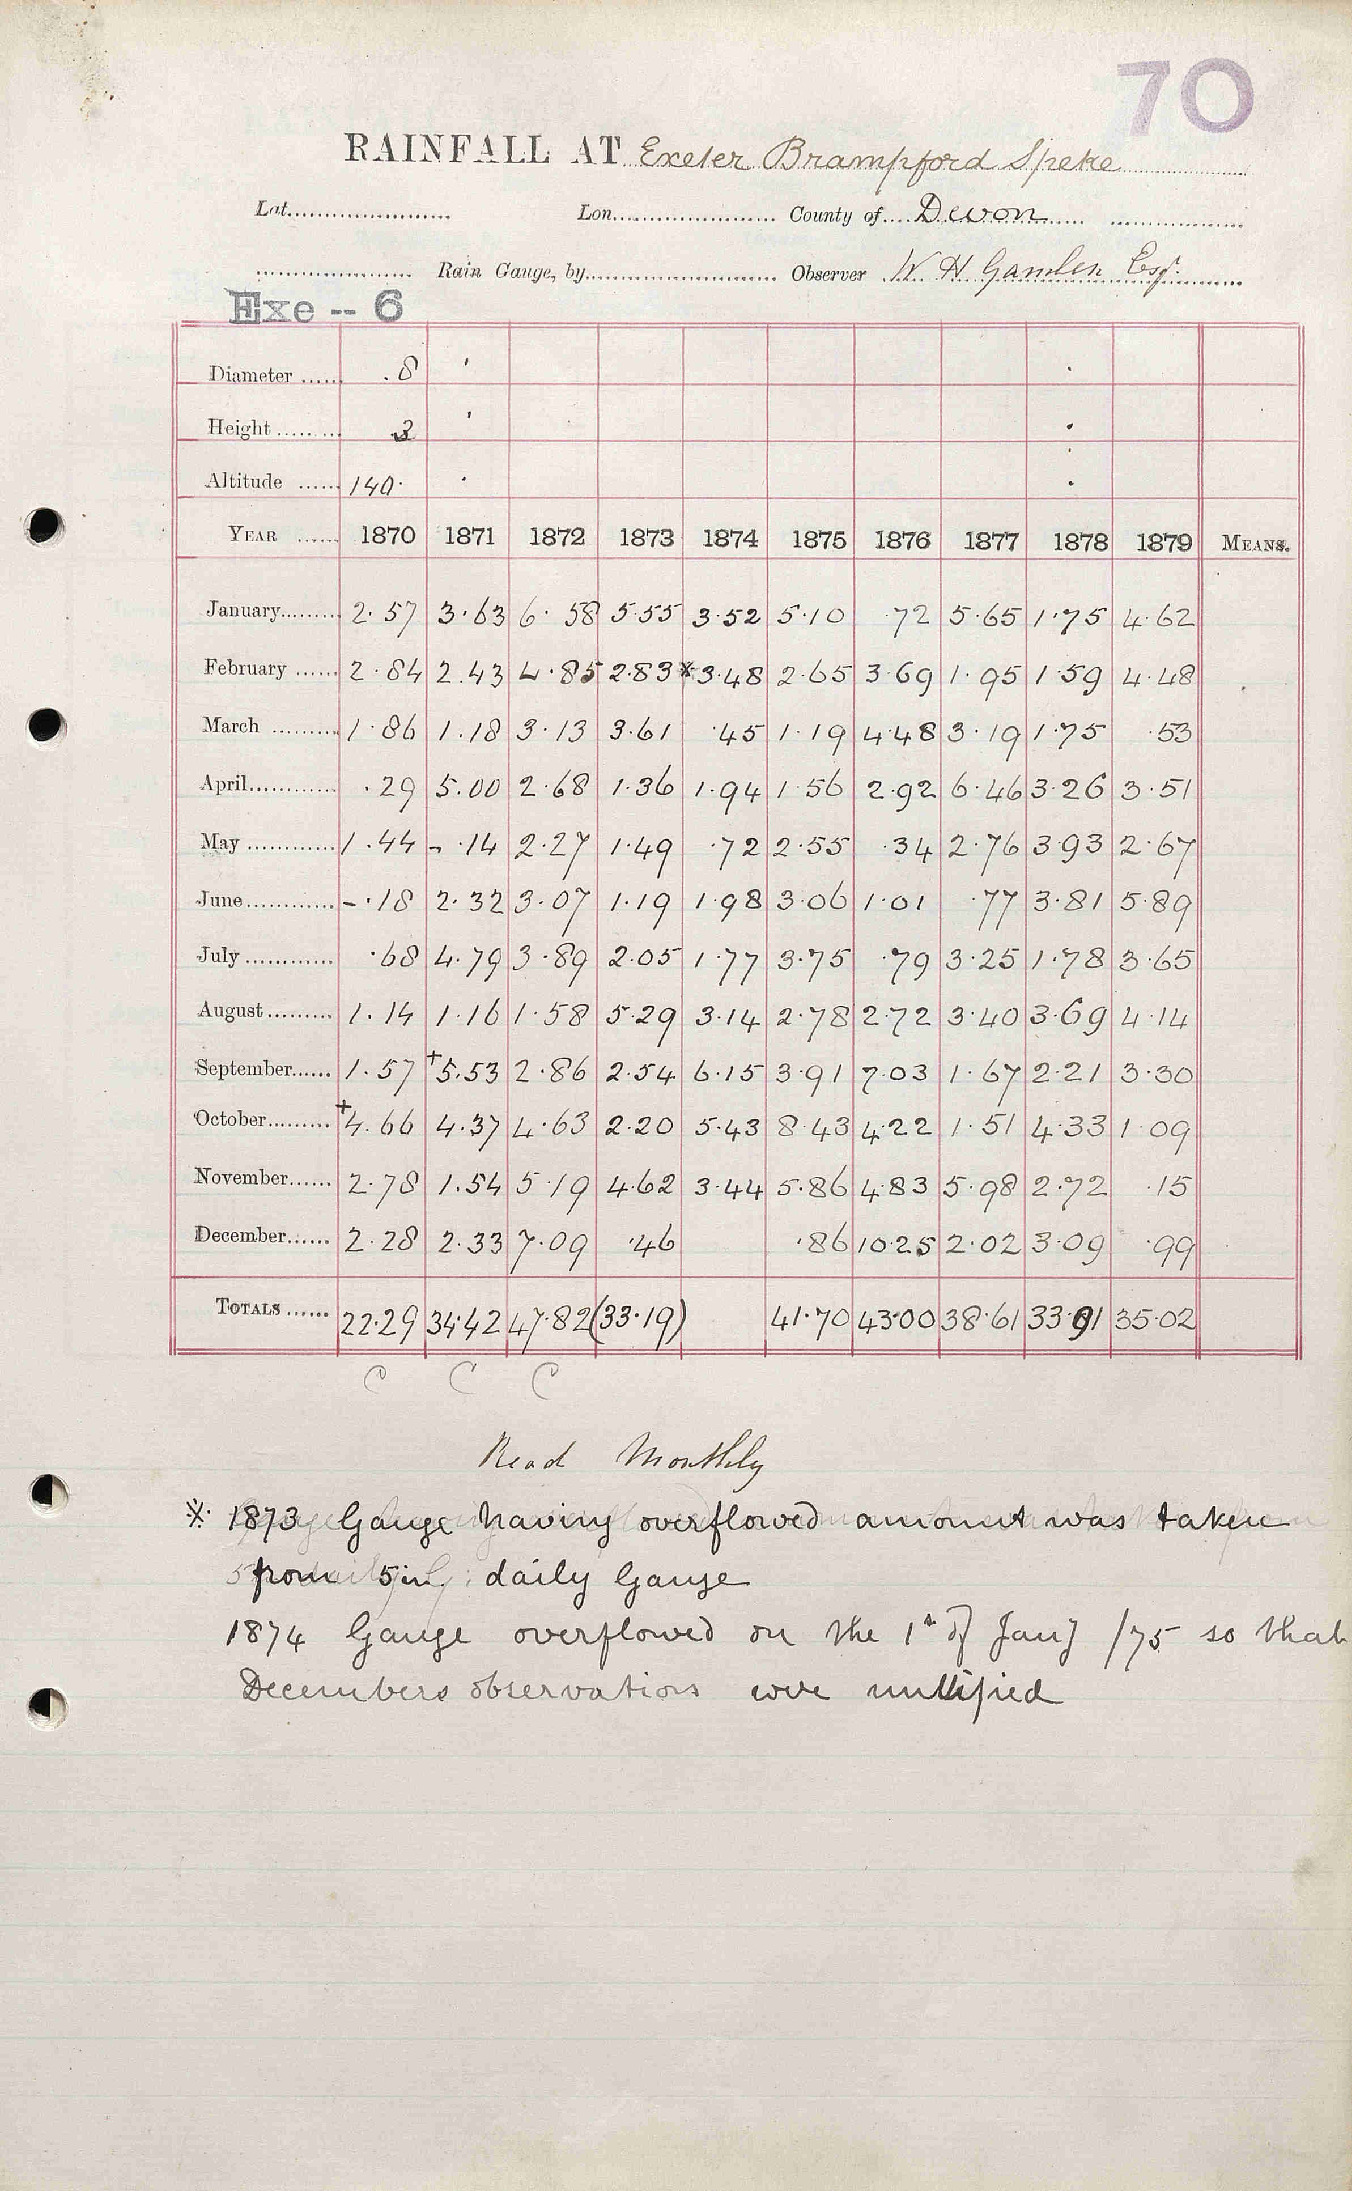 70
RAINFALL AT Exeter Brampford Speke
Lat. Lon. County of Devon
Rain Gauge, by Observer W H Gamlen Esq.
Exe -- 6
Diameter 8
Height 3
Altitude 140
YEAR 1870 1871 1872 1873 1874 1875 1876 1877 1878 1879 MEANS.
January 2.57 3.63 6.58 5.55 3.52 5.10 .72 5.65 1.75 4.62
February 2.84 2.43 4.85 2.83* 3.48 2.65 3.69 1.95 1.59 4.48
March 1.86 1.18 3.13 3.61 .45 1.19 4.48 3.19 1.75 .53
April .29 5.00 2.68 1.36 1.94 1.56 2.92 6.46 3.26 3.51
May 1.44 - .14 2.27 1.49 .72 2.55 .34 2.76 3.93 2.67
June - .18 2.32 3.07 1.19 1.98 3.06 1.01 .77 3.81 5.89
July .68 4.79 3.89 2.05 1.77 3.75 .79 3.25 1.78 3.65
August 1.14 1.16 1.58 5.29 3.14 2.78 2.72 3.40 3.69 4.14
September 1.57 +5.53 2.86 2.54 6.15 3.91 7.03 1.67 2.21 3.30
October +4.66 4.37 4.63 2.20 5.43 8.43 4.22 1.51 4.33 1.09
November 2.78 1.54 5.19 4.62 3.44 5.86 4.83 5.98 2.72 .15
December 2.28 2.33 7.09 .46 .86 10.25 2.02 3.09 .99
TOTALS 22.29 34.42 47.82 (33.19) 41.70 43.00 38.61 33.91 35.02
C C C
Read Monthly
* 1873 Gauge having overflowed amount was taken
from 5 in. daily Gauge
1874 Gauge overflowed on the 1st of Jany /75 so that
Decembers observations were nullified